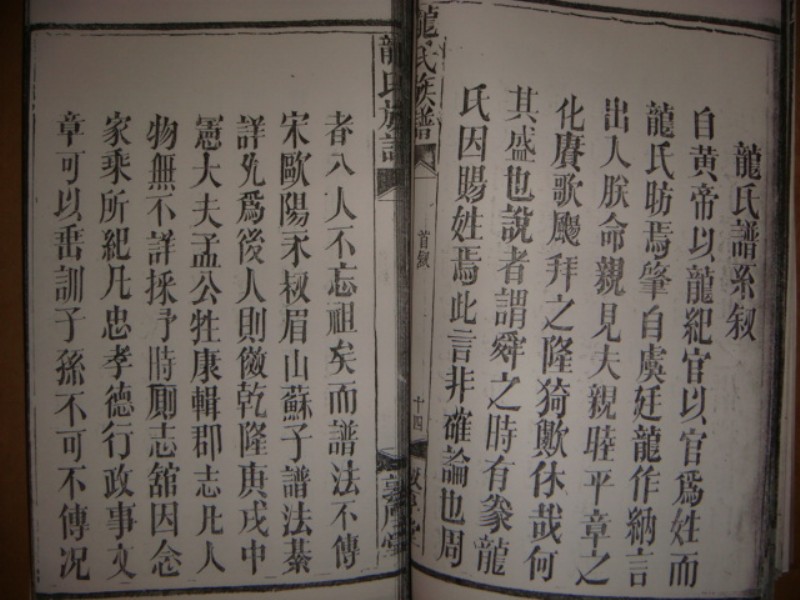 龍氏譜系敘
自黃帝以龍紀官以官爲姓而
龍氏昉焉肇自虞廷龍作納言
出入朕命親見夫親睦平章之
化賡歌颺拜之隆猗歟休哉何
其盛也說者謂舜之時有豢龍
氏因賜姓焉此言非確論也周
龍氏族譜
首敘
十四
敦厚堂
龍氏族譜
敦厚堂
者八人不忘祖矣而譜法不傳
宋歐陽永叔眉山蘇子譜法綦
詳允爲後人則傚乾隆庚戌中
憲大夫孟公牲康輯郡志凡人
物無不詳採予時厠志舘因念
家乘所紀凡忠孝德行政事文
章可以垂訓子孫不可不傳况